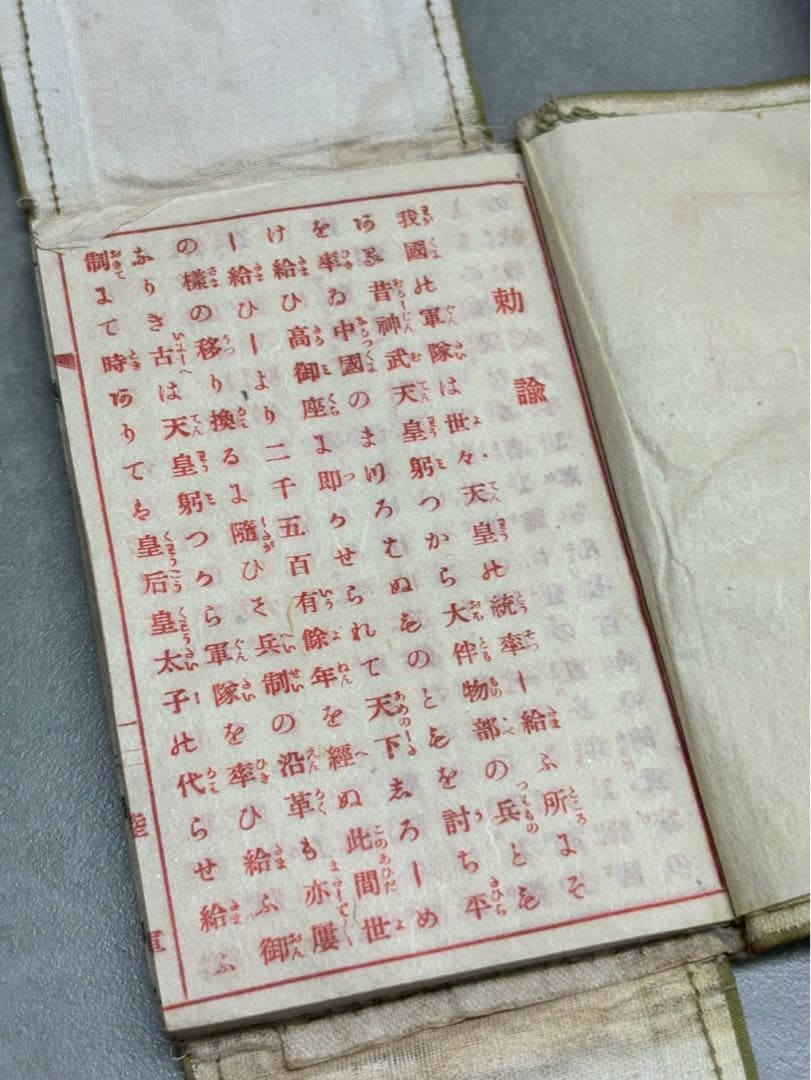 勅諭
我國の軍隊は世々天皇の統率し給ふ所にそ
ある昔神武天皇躬つから大伴物部の兵とも
を率ゐ中國のまつろはぬものともを討ち平
け給ひ高御座に即かせられて天下しろしめ
し給ひしより二千五百有餘年を經ぬ此間世
の樣の移り換るに隨ひて兵制の沿革も亦屢
なりき古は天皇躬つから軍隊を率ひ給ふ御
制にて時ありては皇后皇太子の代らせ給ふ